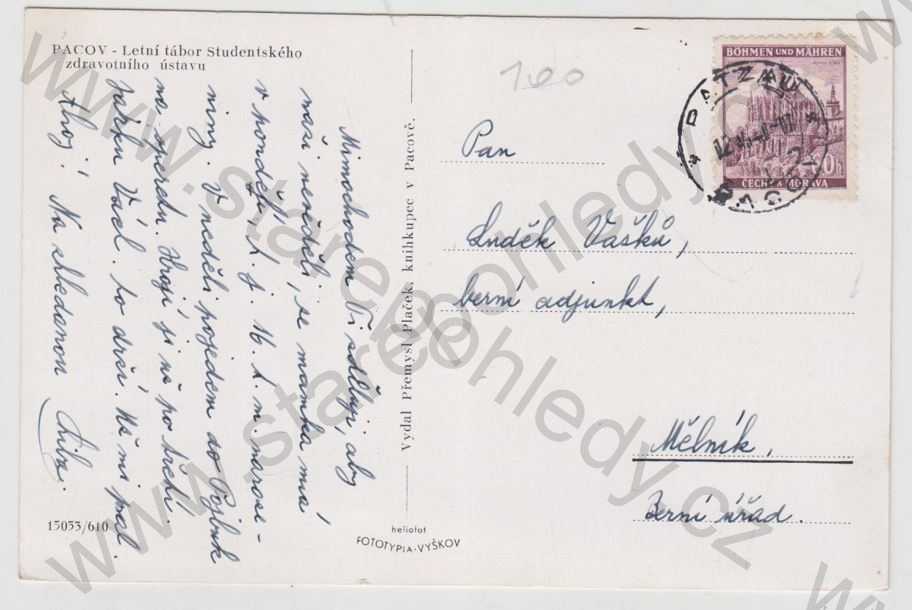 PACOV - Letní tábor Studentského
zdravotního ústavu
Mimochodem Ti sděluji, aby
naši nevěděli, že mamka má
v pondělí t. j. 16. t. m. naroze-
niny. V neděli pojedem do
na operetu. Hrají ji už po třetí.
Václ. to drží. Už mi psal.
Ahoj! Na shledanou
15053/610
Vydal Přemysl Plaček, knihkupec v Pacově.
heliofot
FOTOTYPIA-VYŠKOV
100
BÖHMEN UND MÄHREN
ČECHY A MORAVA
PATZAU
PACOV
Pan
Luděk Vašků,
berní adjunkt,
Mělník,
Berní úřad.
www.starepohledy.cz
www.starepohledy.cz